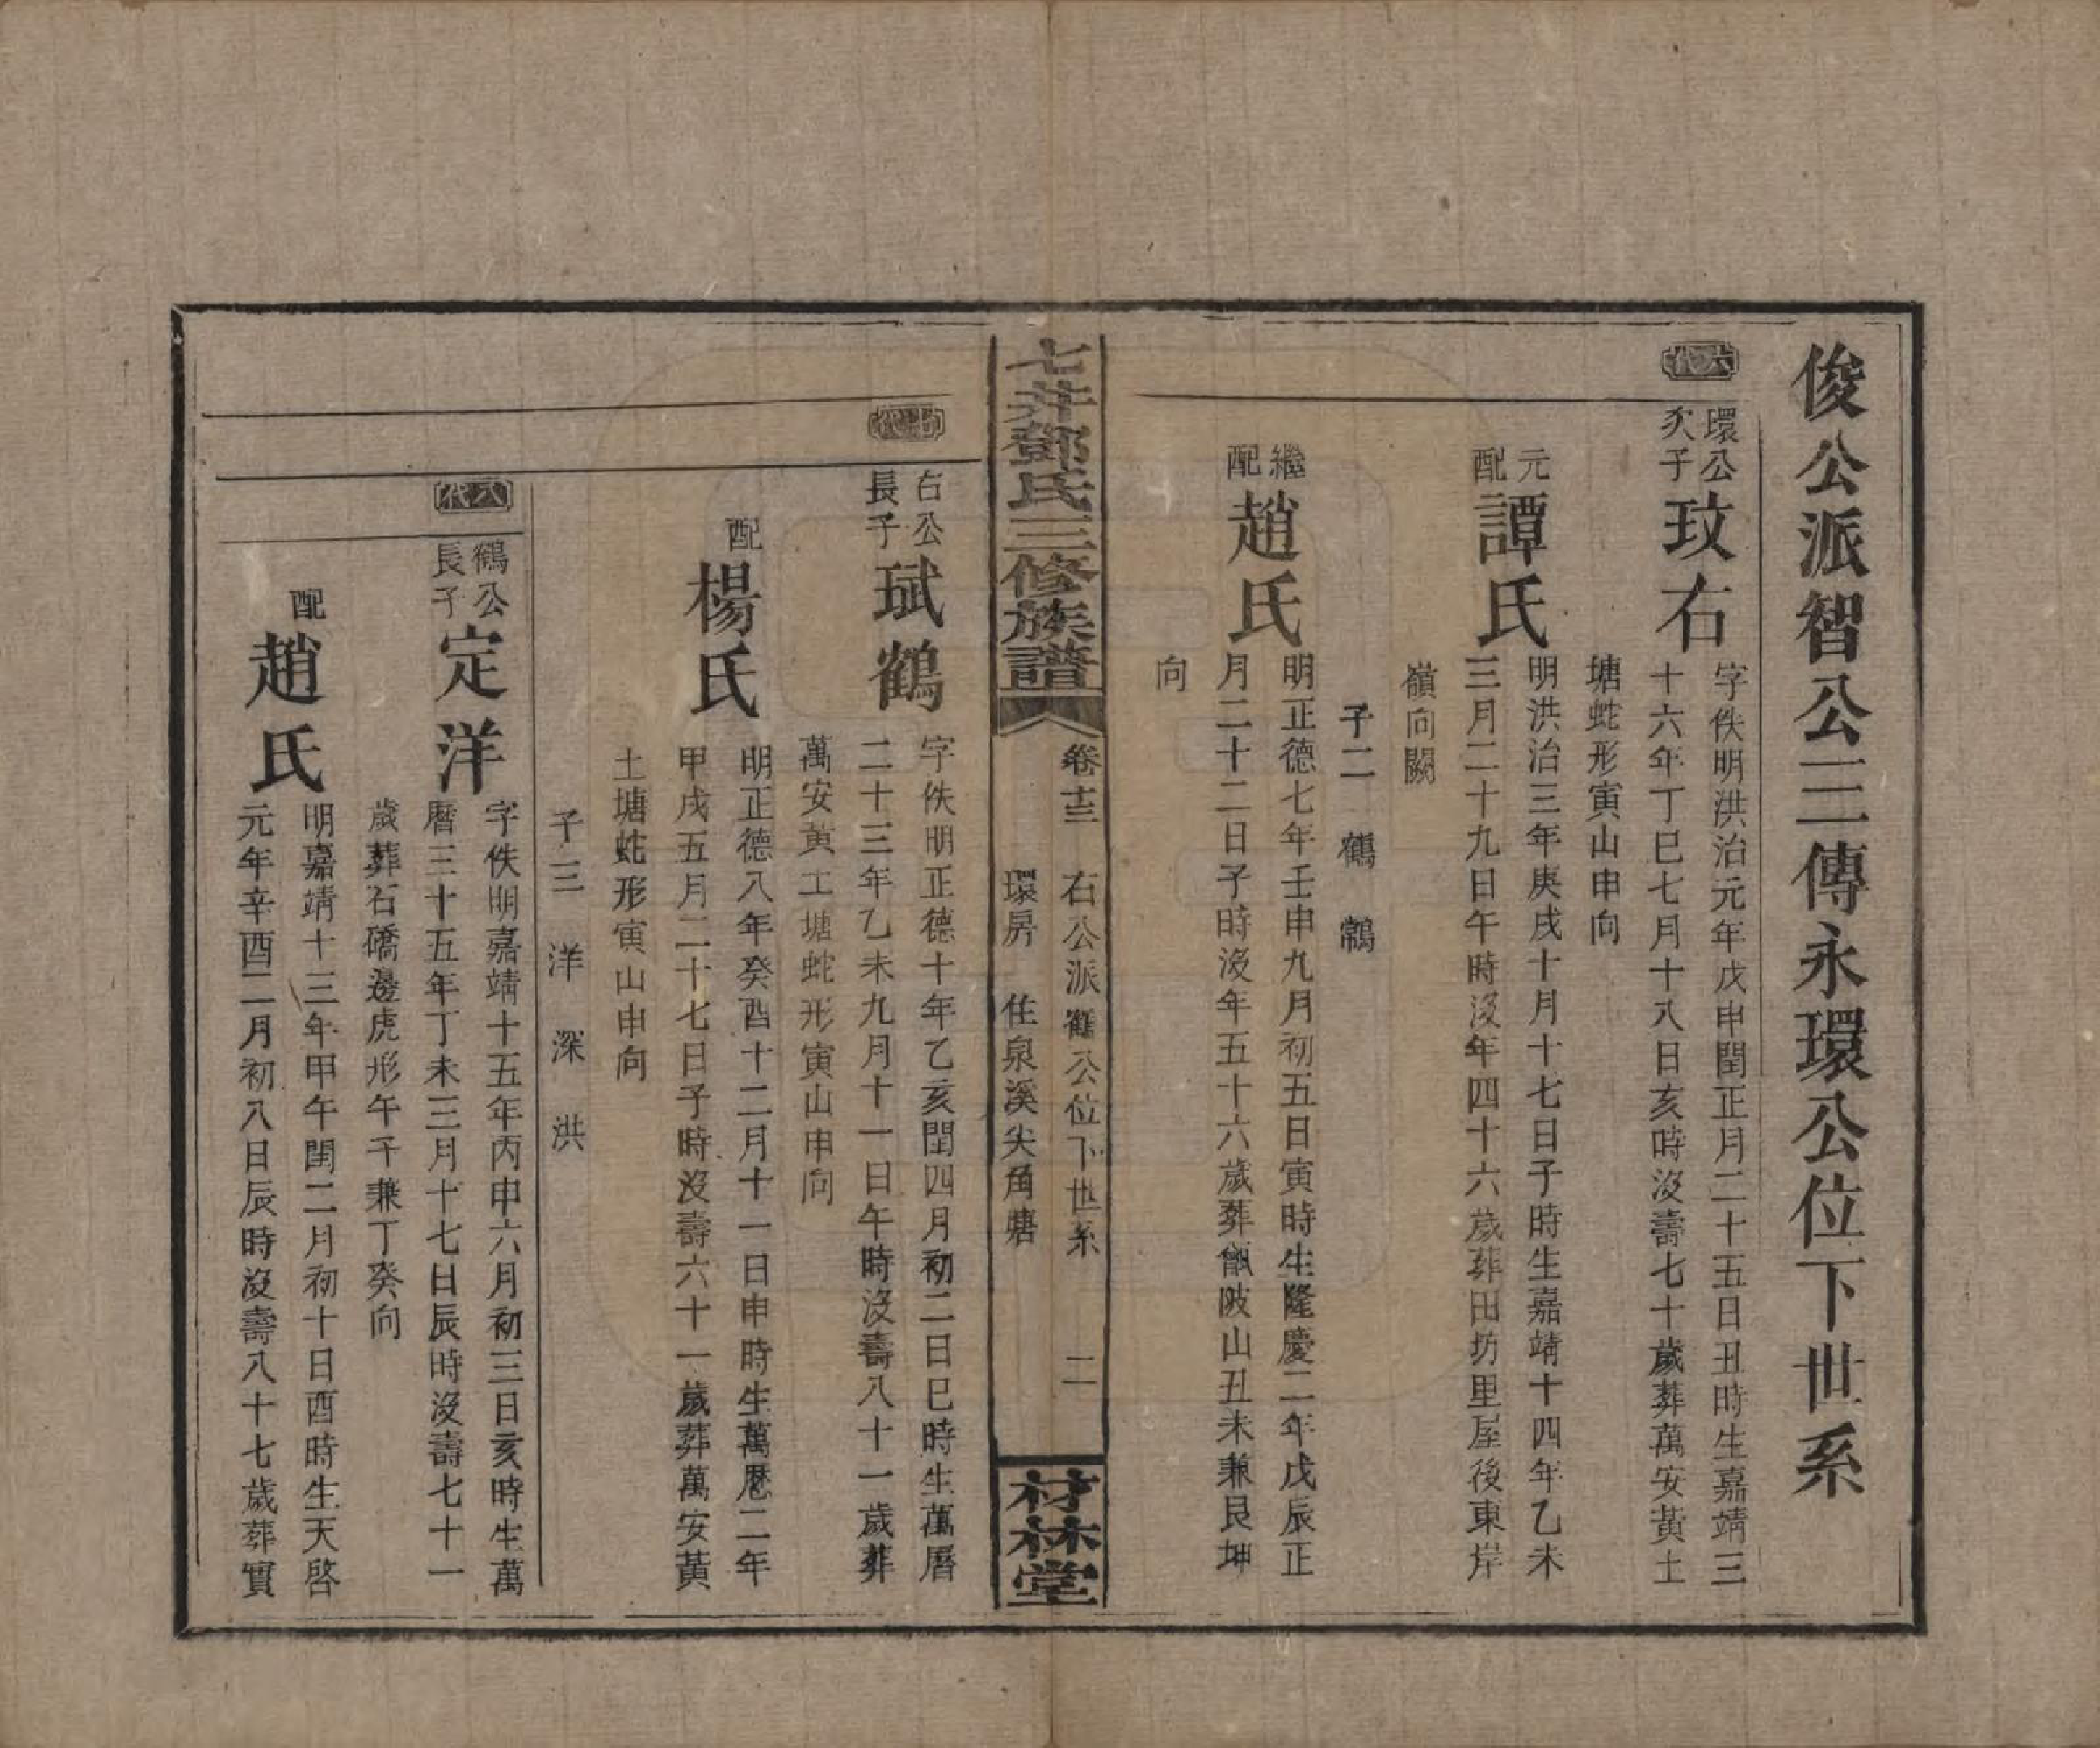 俊公派智公三傳永環公位下世系
六代
環公
次子
玟右
字佚明洪治元年戊申閏正月二十五日丑時生嘉靖三
十六年丁巳七月十八日亥時沒壽七十歲葬萬安黃土
塘蛇形寅山申向
元
配
譚氏
明洪治三年庚戌十月十七日子時生嘉靖十四年乙未
三月二十九日午時沒年四十六歲葬田坊里屋後東岸
嶺向闕
子二 鶴 鷫
繼
配
趙氏
明正德七年壬申九月初五日寅時生隆慶二年戊辰正
月二十二日子時沒年五十六歲葬甑陂山丑未兼艮坤
向
七井鄧氏三修族譜
卷十三 右公派鶴公位下世系 二
環房 住泉溪尖角塘
材林堂
七代
右公
長子
珷鶴
字佚明正德十年乙亥閏四月初二日巳時生萬曆
二十三年乙未九月十一日午時沒壽八十一歲葬
萬安黃工塘蛇形寅山申向
配
楊氏
明正德八年癸酉十二月十一日申時生萬曆二年
甲戌五月二十七日子時沒壽六十一歲葬萬安黃
土塘蛇形寅山申向
子三 洋 深 洪
八代
鶴公
長子
定洋
字佚明嘉靖十五年丙申六月初三日亥時生萬
曆三十五年丁未三月十七日辰時沒壽七十一
歲葬石礄邊虎形午千兼丁癸向
配
趙氏
明嘉靖十三年甲午閏二月初十日酉時生天啓
元年辛酉二月初八日辰時沒壽八十七歲葬實